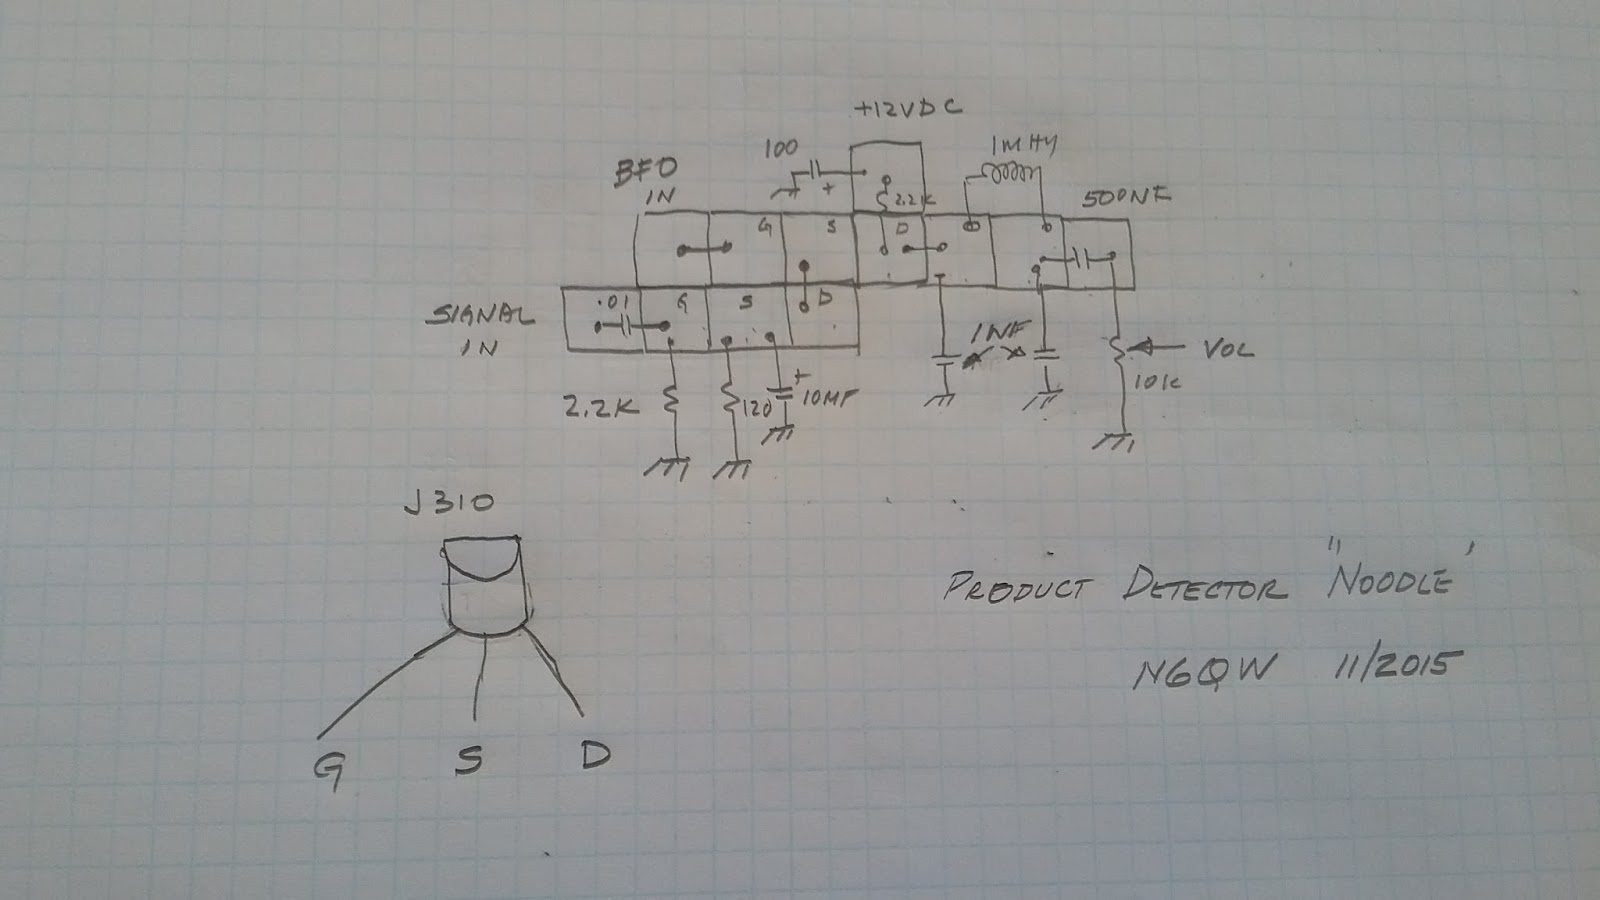 +12VDC
100
1MHY
BFO
IN
+
2.2K
500NF
G
S
D
SIGNAL
IN
.01
G
S
D
1NF
VOL
10K
2.2K
120
+
10MF
J310
G S D
PRODUCT DETECTOR "NOODLE'
N6QW 11/2015